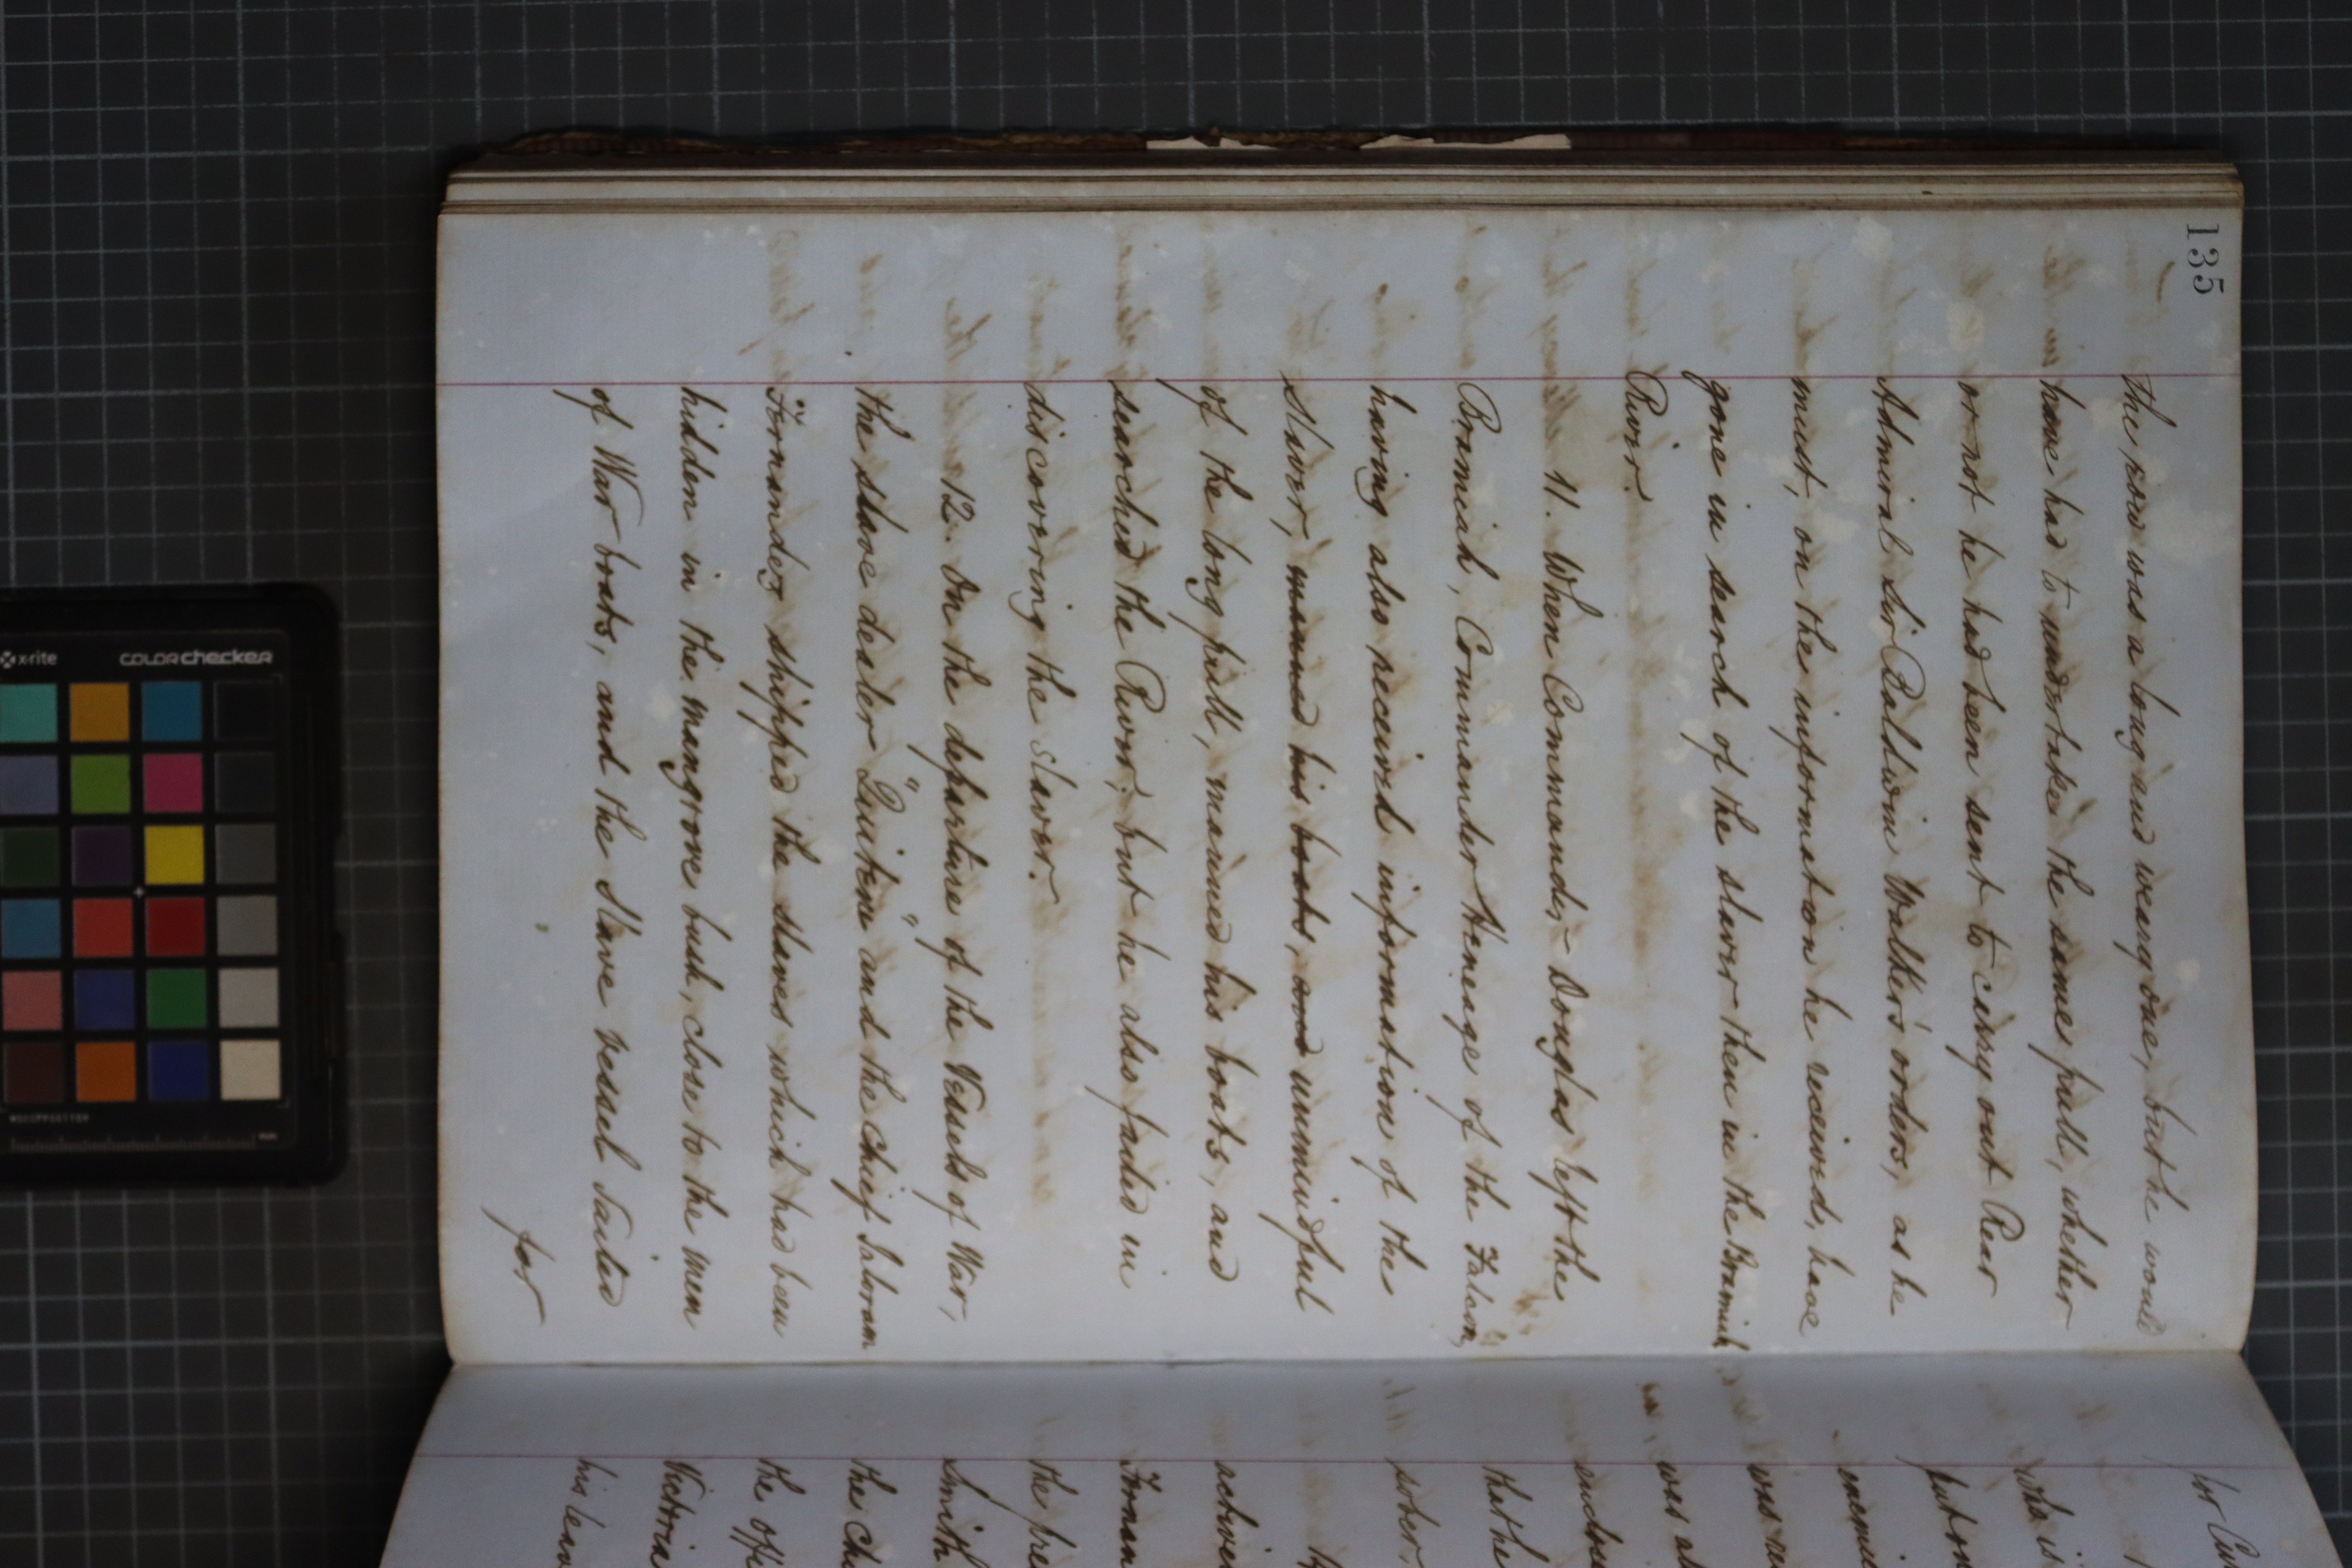 135
the row was a long and weary one, but he would
have had to undertake the same pull, whether
or not he had been sent to carry out Rear
Admiral Sir Baldwin Walker's orders, as he
must, on the information he received, have
gone in search of the slaver then in the Bramiah
River.
11. When Commander Douglas left the
Bramiah, Commander Heneage of the Falcon,
having also received information of the
slaver, manned his boats, and unmindful
of the long pull, manned his boats, and
searched the River, but he also failed in
discovering the Slaver.
12. On the departure of the Vessels of War,
the slave dealer "Quitein" and the Chief Salvram
Fernandez shipped the slaves which had been
hidden in the mangrove bush, close to the Men
of War boats, and the Slave vessel Sailed
for
for Cu
who i
put on
enemi
was
was al
that the
sober
active
Fernan
the pre
Smith
the Ch
the offi
Victoria
his leav
x-rite
colorchecker